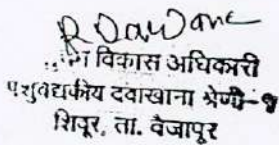 R Dawane
विकास अधिकारी
पशुवैद्यकीय दवाखाना श्रेणी-१
शिवूर, ता. वैजापूर